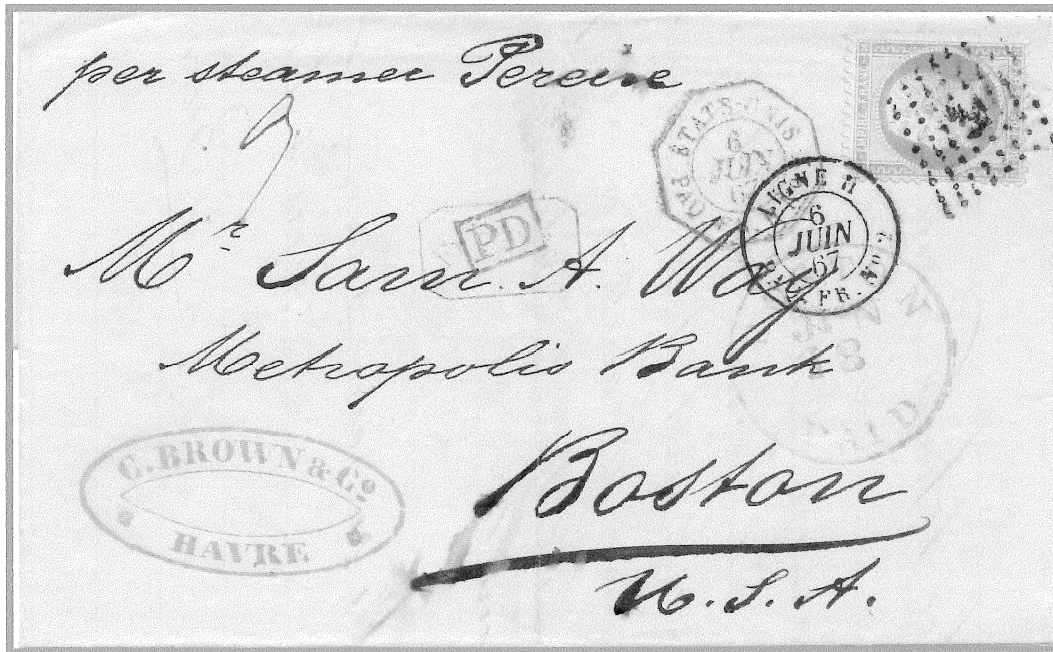 per steamer Pereire
ÉTATS-UNIS
6
JUIN
67
LIGNE H
6
JUIN
67
PAQ. FR. Nº 2
PD
Mr Sam. A. Way
Metropolis Bank
Boston
U. S. A.
C. BROWN & Co
HAVRE